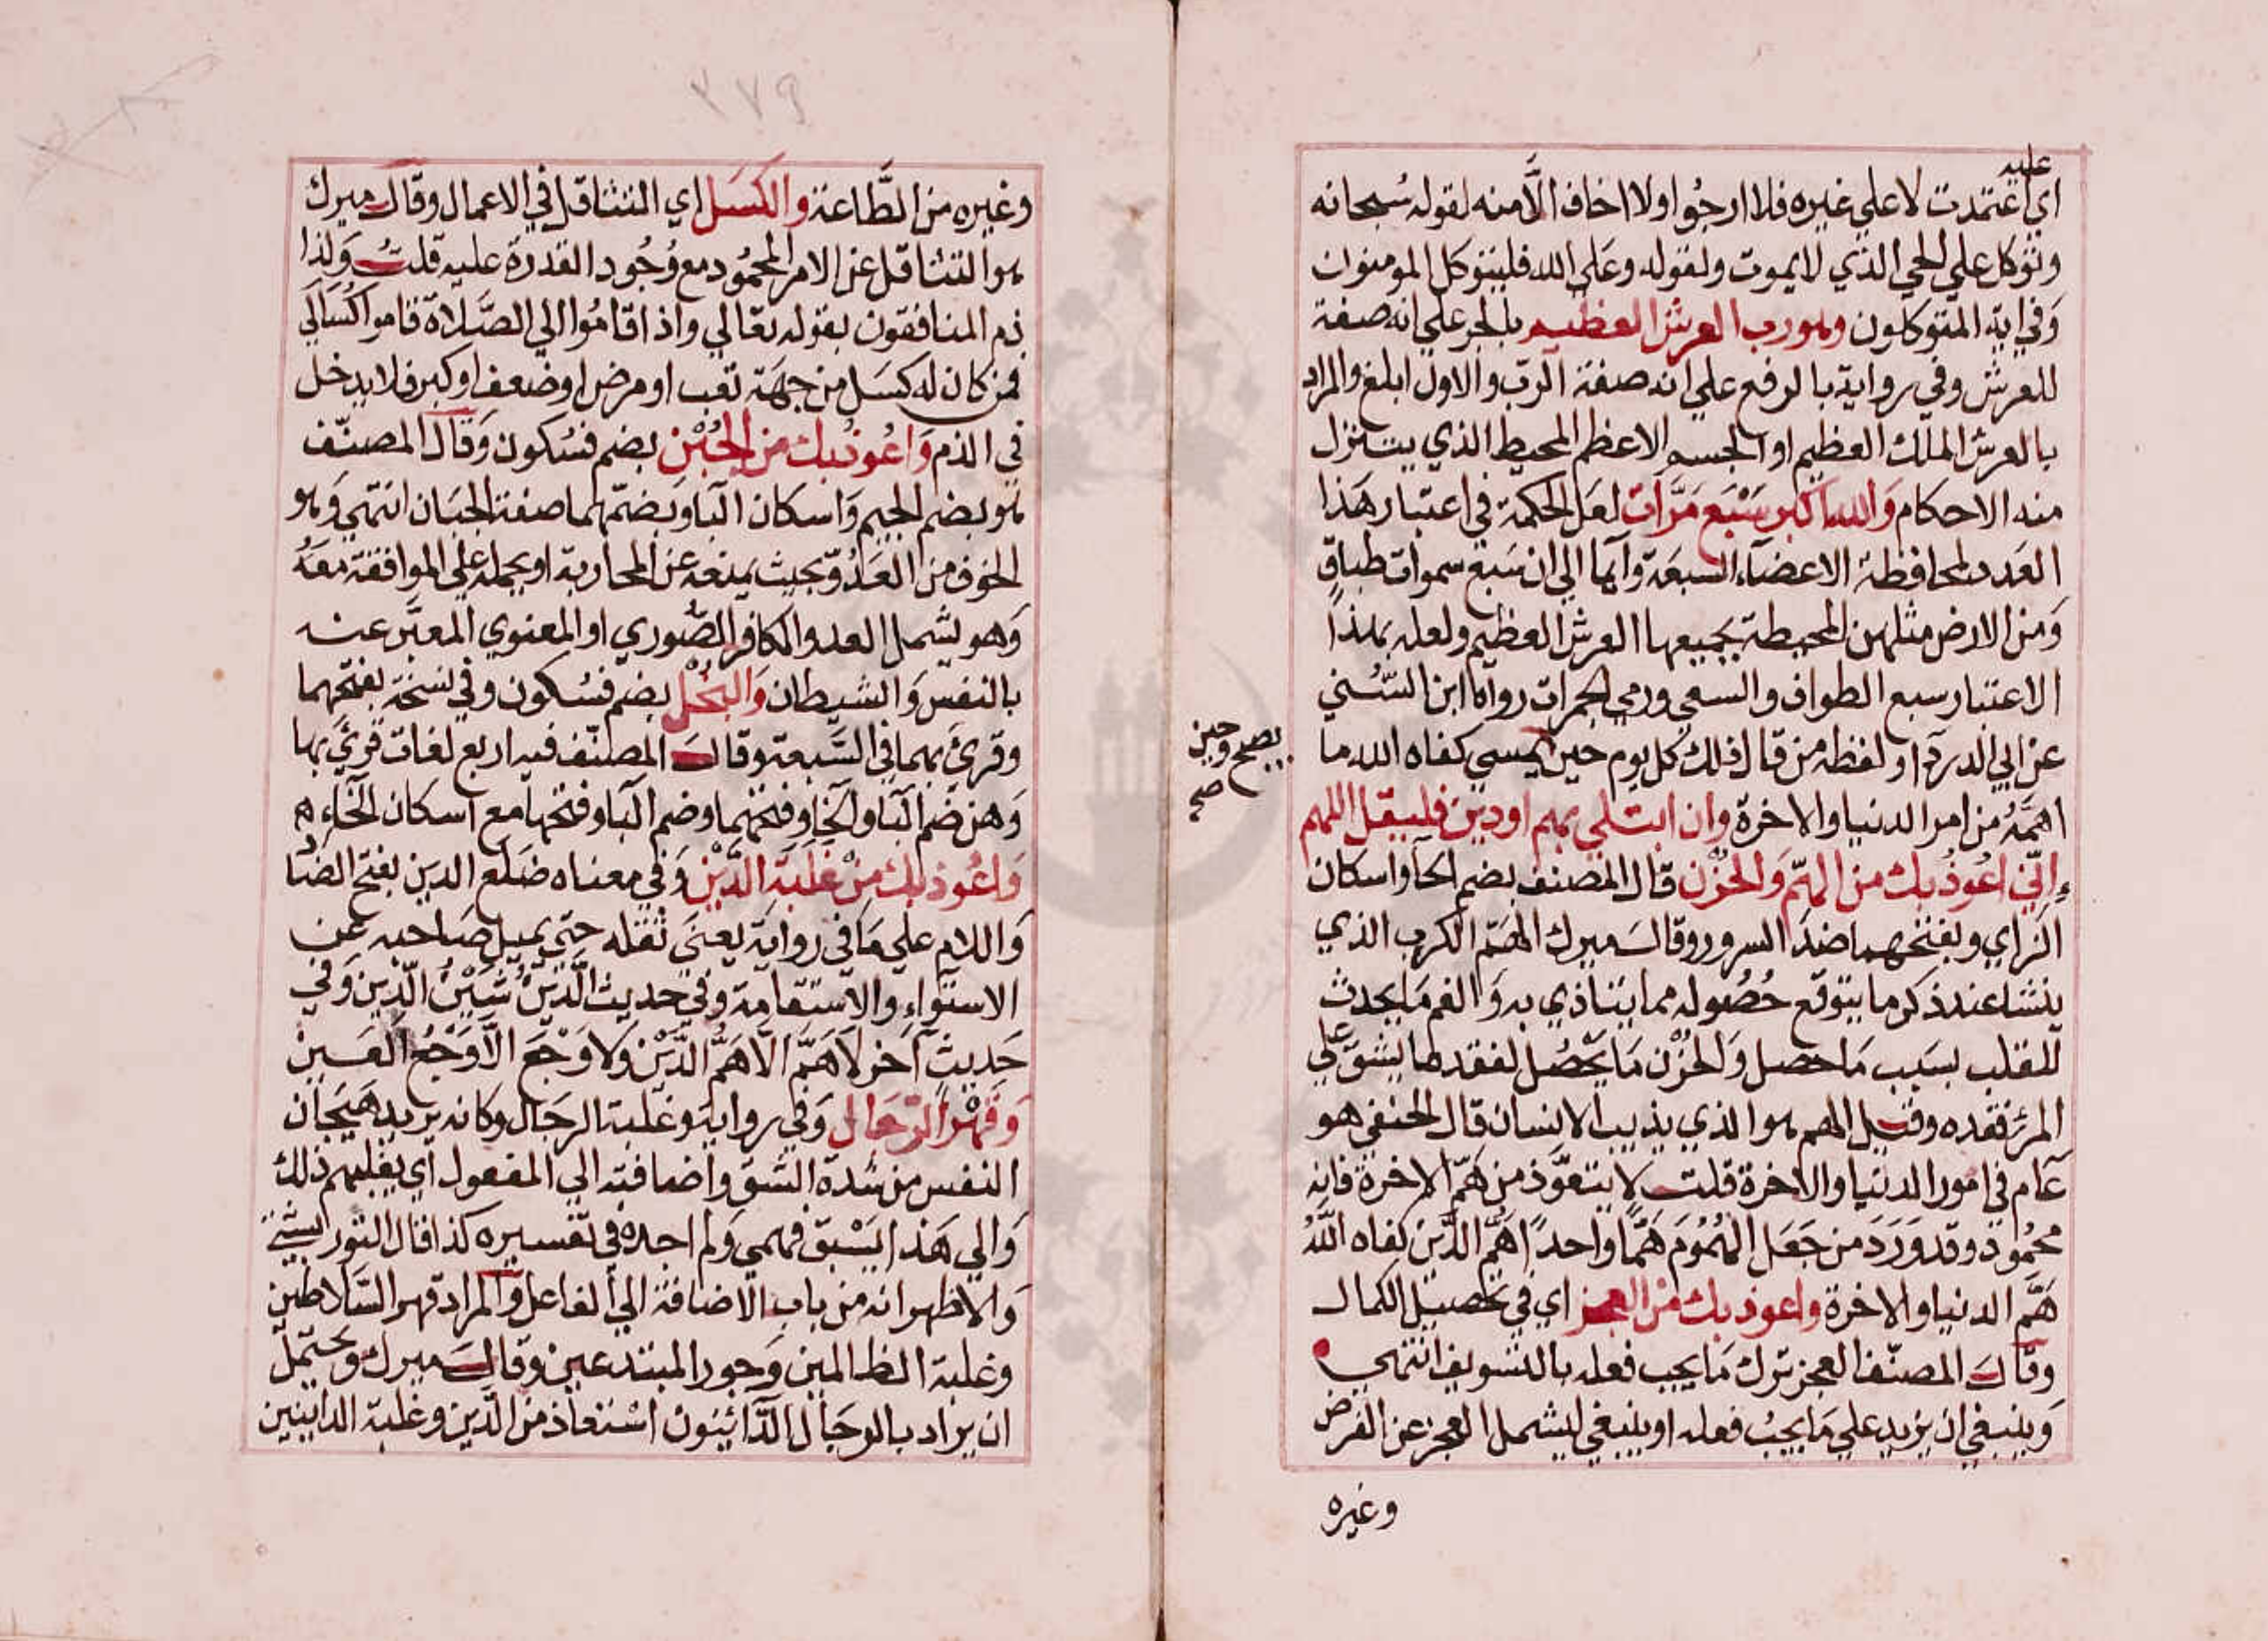 عليه
اي اعتمدت لا علي غيره فلا ارجوا ولا اخاف الا منه لقوله سُبحانه
وتوكل علي الحي الذي لا يموت ولقوله وعَلي الله فليتوكل المومنون
وَفي اية المتوكلون وهو رب العرش العظيم بالجر علي انه صفة
للعرش وفي رواية بالرفع علي انه صفة الرّب والاول ابلغ والمراد
بالعرش الملك العظيم او الجسم الاعظم المحيط الذي يتنزل
منه الاحكام وَالله اكبر سَبْعَ مَرَّات لعَل الحكمة في اعتبار هَذا
العَدد لمحافظة الاعضآء السبعَة وآيما الي ان سَبع سموات طباقٍ
وَمن الارض مثلهن المحيطة بجميعها العرش العظيم ولعله بهذا
الاعتبار سبع الطواف والسعي ورمي الجمرات رواه ابن السُّني
عن ابي الدردآ ولفظه من قال ذلك كل يوم حين يمسي كفاه الله ما
يصبح وحين
صح
اهمَّهُ من امر الدنيا والاخرة وان ابتلي بهم او دين فليقل اللهم
إِنّي اعُوذُ بك من الهَمّ وَالحُزْن قال المصنف بضم الحآ واسكان
الزاي وبفتحهما ضدّ السرور وقال ميرك الهَمّ الكرب الذي
ينشا عند ذكر ما يتوقع حُصُوله مما يتاذي به وَالغم مَا يحدث
للقلب بسَبب مَا حصل وَالحُزْن مَا يَحْصُل لفقد ما يشق عَلي
المرْء فقده وقيل الهم هو الذي يذيب الانسان قال الحنفي هو
عَام في امور الدنيا والاخرة قلت لا يتعَوَّذ من هَمّ الاخرة فانه
محمُود وقد وَرَدَ من جَعَل الهُمُومَ هَمًّا واحداً اهَمُّ الدِّين كفاه اللّهُ
هَمَّ الدنيا والاخرة واعوذ بك من العجز اي في تحصيل الكمال
وقال المصنّف العجز ترك مَا يجب فعله بالتسويف انتهي
وَينبغي ان يزيد علي مَا يجبُ فعله او ينبغي ليشمل العجز عن الفرض
وغيره
٢٧٩
وغيره من الطَّاعَة والكَسَل اي التثاقل في الاعمال وقال ميرك
هو التثاقل عن الامر المحمُود مع وُجُود القدرة عليه قلتُ وَلذا
ذم المنافقون بقوله تعَالي واذا قامُوا الي الصَّلاة قاموا كُسَالَي
فمن كان له كسَل من جهَة تعب او مرض او ضعف او كبر فلا يدخل
في الذم وَاعُوذُ بك من الجُبْن بضم فسُكون وَقال المصنّف
هو بضم الجيم وَاسكان البَا وَبضمّهما صفة الجبَان انتهي وَهو
الخوف من العَدُوّ بحيث يمنعه عن المحاربة او يحمله علي الموافقة معَهُ
وَهو يشمل العدو الكافر الصُّوري او المعنوي المعبَّر عنه
بالنفس وَالشيطان وَالبُخْل بضم فسُكون وفي نسخة بفتحهما
وقرئَ بهما في السَّبعة وقال المصنّف فيه اربع لغات قرئَ بها
وَهن ضَم البَا والخَا وفتحهما وضم البَا وفتحها مع اسكان الخآءِ
وَاعُوذ بك مِنْ غَلَبَةِ الدَّيْن وَفي معناه ضَلَع الدين بفتح الضَا
وَاللام علي مَا في روايَة يَعني ثقله حتي يميل صَاحبه عَن
الاستوآءِ والاستقامة وفي حديث الدَّيْنُ شَيْنُ الدّين وَفي
حَديثٍ آخر لَا هَمَّ الَّا هَمُّ الدَّيْن وَلا وَجَعَ الَّا وَجَعُ العَين
وَقَهْرِ الرّجَال وَفي رواية وغلبة الرجَال وكانه يريد هَيَجان
النفس من شدة الشبق واضافته الي المفعول اي يغلبهم ذلك
وَالي هَذا يَسْبق فهمي وَلم اجده في تفسيره كذا قال التوربشتي
وَالاظهر انه من باب الاضافة الي الفاعل وَالمراد قهر السّلاطين
وغلبة الظالمين وَجور المبتدعين وقال ميرك ويحتمل
ان يراد بالرجَال الدَّائِنون اسْتعاذ من الدّين وغلبة الداينين